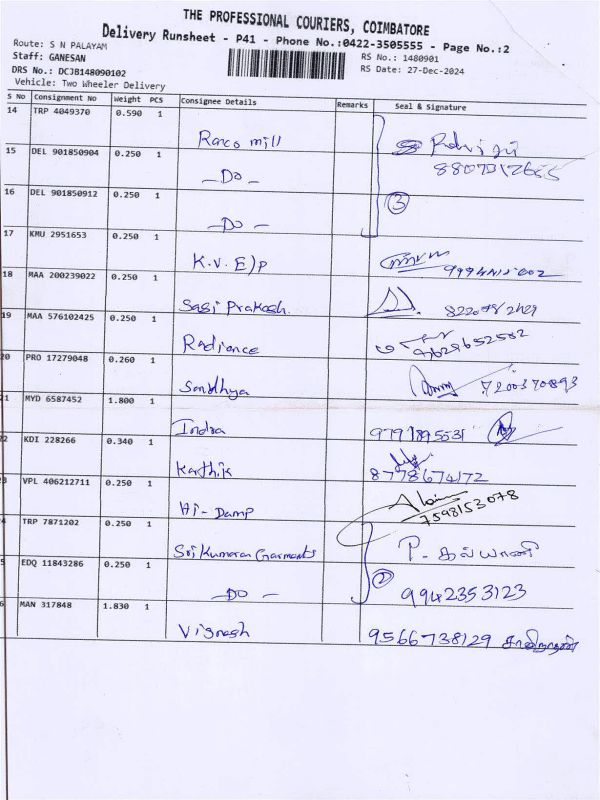 THE PROFESSIONAL COURIERS, COIMBATORE
Delivery Runsheet - P41 - Phone No.:0422-3505555 - Page No.:2
Route: S N PALAYAM
Staff: GANESAN RS No.: 1480901
DRS No.: DCJB148090102 RS Date: 27-Dec-2024
Vehicle: Two Wheeler Delivery
S No Consignment No Weight PCS Consignee Details Remarks Seal & Signature
14 TRP 4049370 0.590 1
Ranco mill
15 DEL 901850904 0.250 1
-Do-
16 DEL 901850912 0.250 1
-Do- 3
17 KMU 2951653 0.250 1
K.V. E/p
18 MAA 200239022 0.250 1
Sasi Prakash.
19 MAA 576102425 0.250 1
Radiance 9629652582
20 PRO 17279048 0.260 1
Sandhya 7200370893
21 MYD 6587452 1.800 1
Indra 9791895531
22 KDI 228266 0.340 1
Karthik 8778674172
VPL 406212711 0.250 1
Hi-Damp 7598153078
TRP 7871202 0.250 1
Sri Kumaran Garments P. கல்யாணி
EDQ 11843286 0.250 1
-Do- 2 9942353123
MAN 317848 1.830 1
Vignesh 9566738129